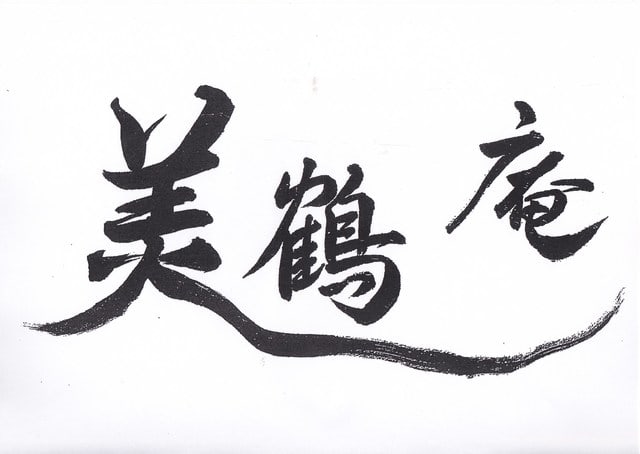 美鶴庵